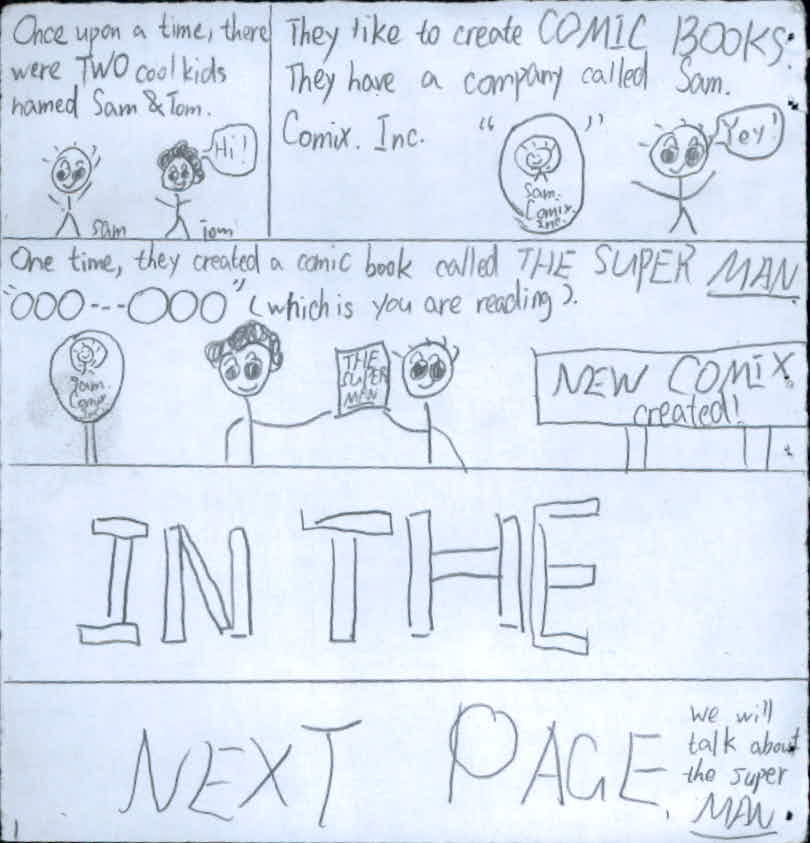 Once upon a time, there
were TWO cool kids
named Sam & Tom.
Hi!
Sam
Tom
They like to create COMIC BOOKS.
They have a company called Sam.
Comix. Inc.
" "
Sam.
Comix.
Inc.
Yey!
One time, they created a comic book called THE SUPER MAN
"OOO---OOO" (which is you are reading).
Sam.
Comix
THE
SUPER
MAN
NEW COMIX.
created!
IN THE
NEXT PAGE.
We will
talk about
the super
MAN.
1